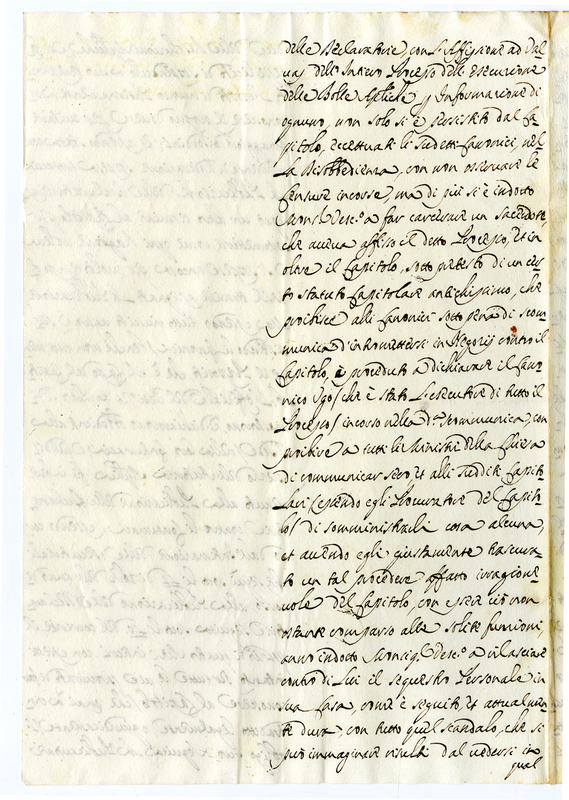 delle Declaratorie, con l'Affissione ad Val-
vas dell'Intiero Processo dell'esecuzione
delle Bolle Aplīche p Informazione di
ognuno, non solo si è persistito dal Ca-
pitolo, eccettuati li sudetti Canonici, nel-
la disobbedienza, con non osservare le
Censure incorse, ma di più si è indotto
Mons.r Vesc.o a far carcerare un Sacerdote,
che aveva affisso il detto Processo, et in
oltre il Capitolo, sotto pretesto di un cer-
to statuto Capitolare antichissimo, che
proibisce alli Canonici sotto pena di scom-
munica d'intromettersi in Negozij contro il
Capitolo, è proceduto a dichiarare il Cano-
nico Ugo/ che è stato l'esecutore di tutto il
Processo/ incorso nella d.a scommunica, con
proibire a tutti li Ministri della Chiesa
di communicar seco, et alli sudditi Capito-
lari/ essendo egli Procuratore del Capito-
lo/ di somministrarli cosa alcuna,
et avendo egli giustamente trascura-
to un tal procedere affatto irragione-
vole del Capitolo, con esser ciò non
ostante comparso alle solite funzioni,
anno indotto Monsig.r Vesc.o a rilasciare
contro di Lui il sequestro Personale in
sua Casa, come è seguito, et attualmen-
te dura, con tutto quel scandalo, che si
può immaginare risulti dal vedersi in
quel